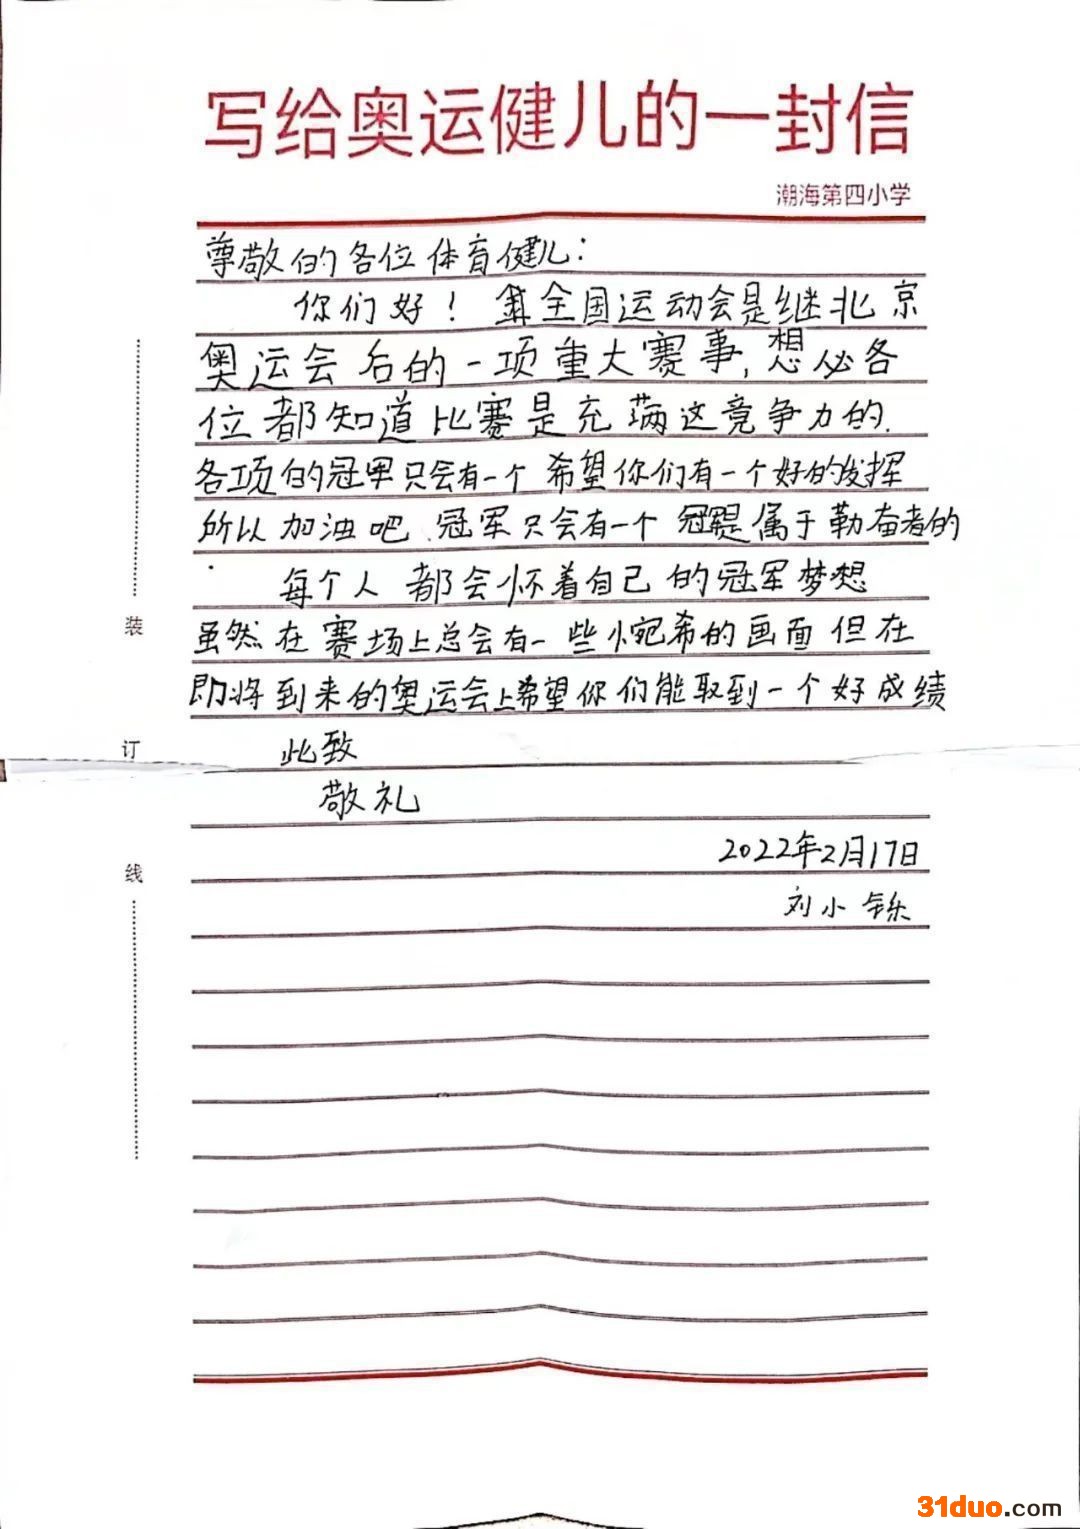 写给奥运健儿的一封信
潮海第四小学
尊敬的各位体育健儿:
你们好! 全国运动会是继北京
奥运会后的一项重大赛事,想必各
位都知道比赛是充满这竞争力的.
各项的冠军只会有一个 希望你们有一个好的发挥
所以加油吧、冠军只会有一个 是属于勤奋者的
每个人都会怀着自己的冠军梦想
虽然在赛场上总会有一些惋希的画面但在
即将到来的奥运会上希望你们能取到一个好成绩
此致
敬礼
2022年2月17日
刘小铄
装
订
线
31duo.com